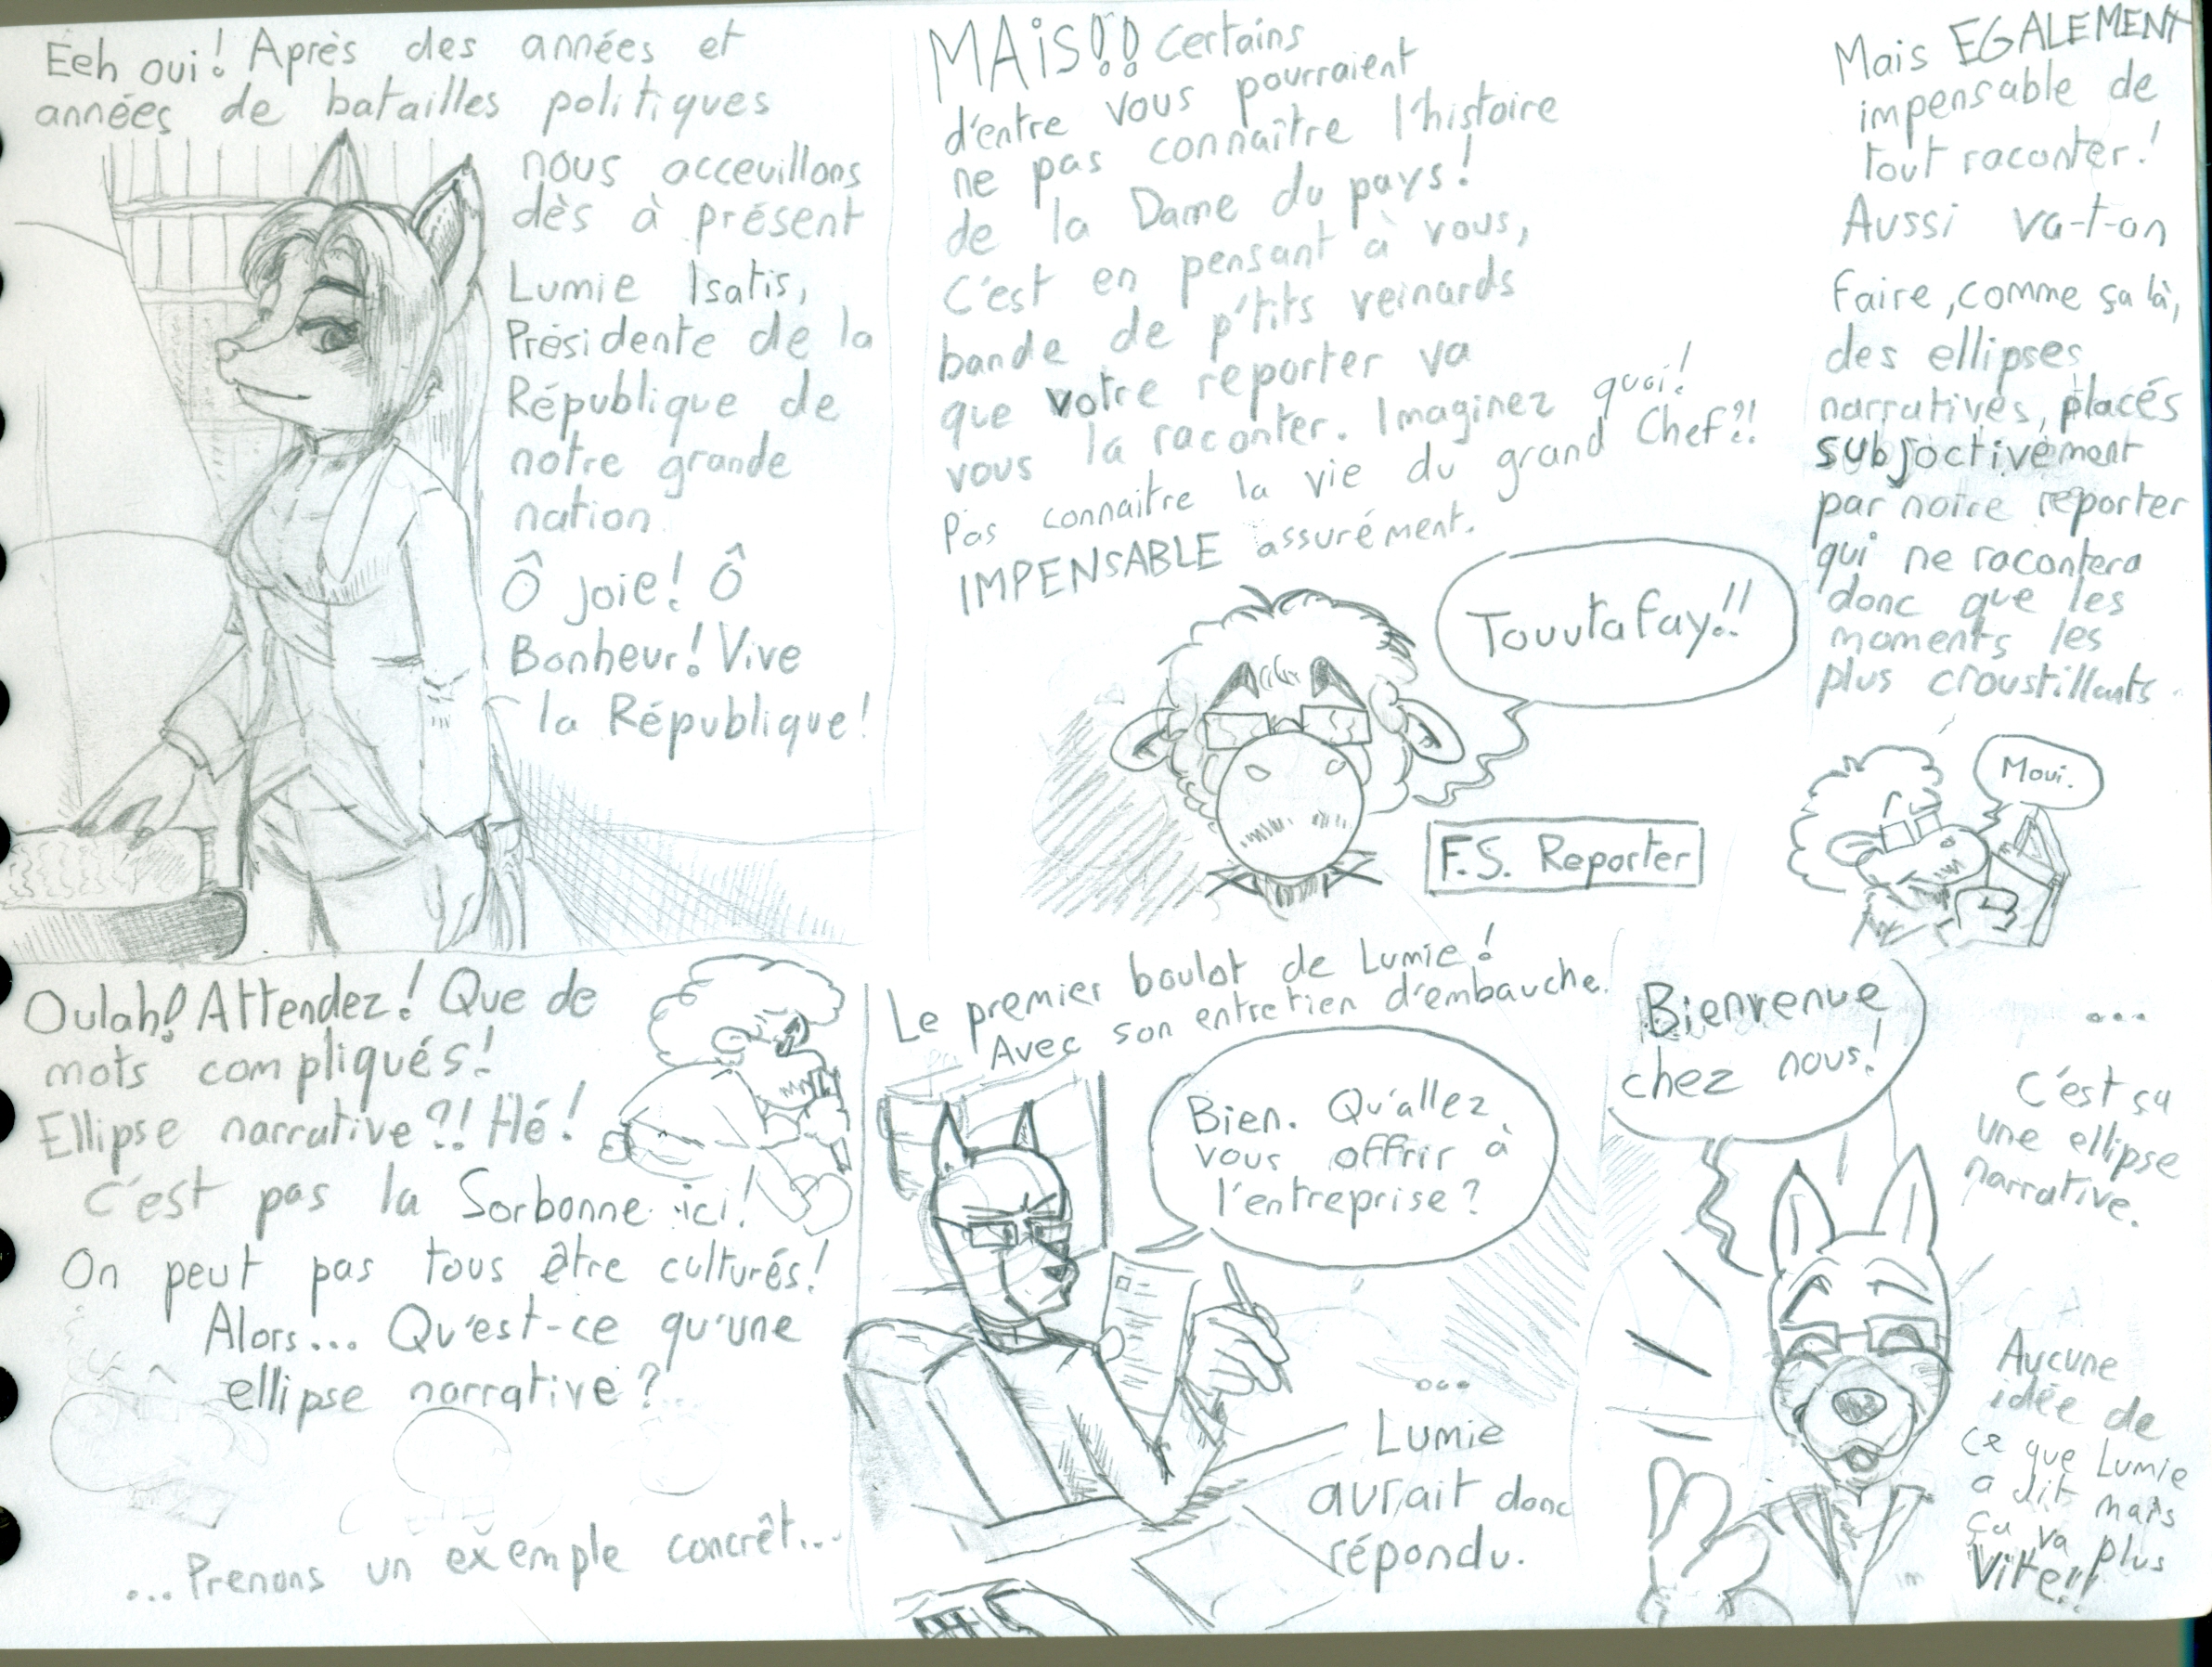 Eeh oui! Après des années et
années de batailles politiques
nous acceuillons
dès à présent
Lumie Isatis,
Présidente de la
République de
notre grande
nation.
Ô joie! Ô
Bonheur! Vive
la République!
MAIS!! Certains
d'entre vous pourraient
ne pas connaître l'histoire
de la Dame du pays!
C'est en pensant à vous,
bande de p'tits veinards
que votre reporter va
vous la raconter. Imaginez quoi!
Pas connaitre la vie du grand Chef?!
IMPENSABLE assurément.
Touutafay!!
F.S. Reporter
Mais EGALEMENT
impensable de
tout raconter!
Aussi va-t-on
faire, comme ça là,
des ellipses
narratives, placés
subjoctivement
par notre reporter
qui ne racontera
donc que les
moments les
plus croustillants.
Moui.
Oulah! Attendez! Que de
mots compliqués!
Ellipse narrative?!! Hé!
C'est pas la Sorbonne ici!
On peut pas tous être culturés!
Alors... Qu'est-ce qu'une
ellipse narrative?
...Prenons un exemple concrêt...
Le premier boulot de Lumie!
Avec son entretien d'embauche.
Bien. Qu'allez
vous offrir à
l'entreprise?
...
Lumie
aurait donc
répondu.
Bienvenue
chez nous!
...
C'est ça
une ellipse
narrative.
Aucune
idée de
ce que Lumie
a dit mais
ça va plus
Vite!!